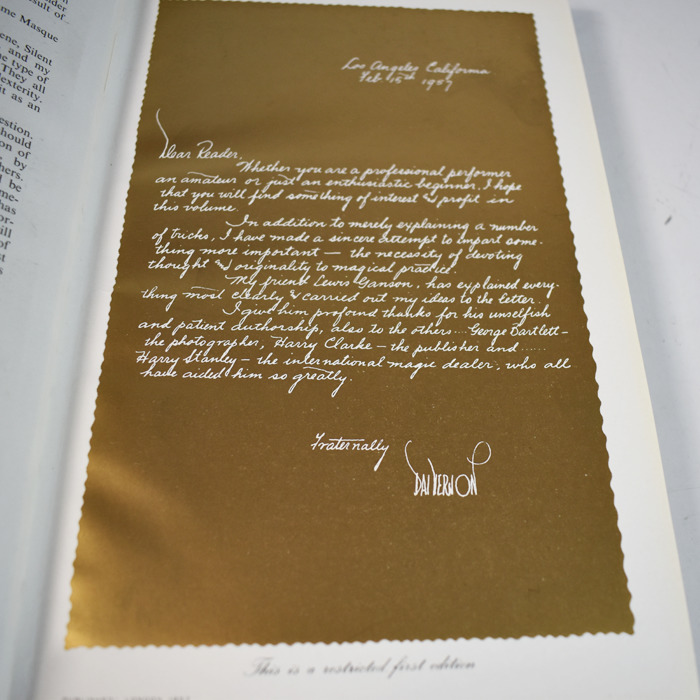 sult of
me Masque
Silent
and my
type of
They all
it as an
of
by
be
has
of
Los Angeles California
Feb 15th 1957
Dear Reader,
Whether you are a professional performer
an amateur or just an enthusiastic beginner, I hope
that you will find something of interest & profit in
this volume.
In addition to merely explaining a number
of tricks, I have made a sincere attempt to impart some-
thing more important — the necessity of devoting
thought & originality to magical practice.
My friend Lewis Ganson, has explained every-
thing most clearly & carried out my ideas to the letter.
I give him profound thanks for his unselfish
and patient authorship, also to the others .... George Bartlett —
the photographer, Harry Clarke — the publisher and ......
Harry Stanley — the international magic dealer, who all
have aided him so greatly.
Fraternally
DAI VERNON
This is a restricted first edition